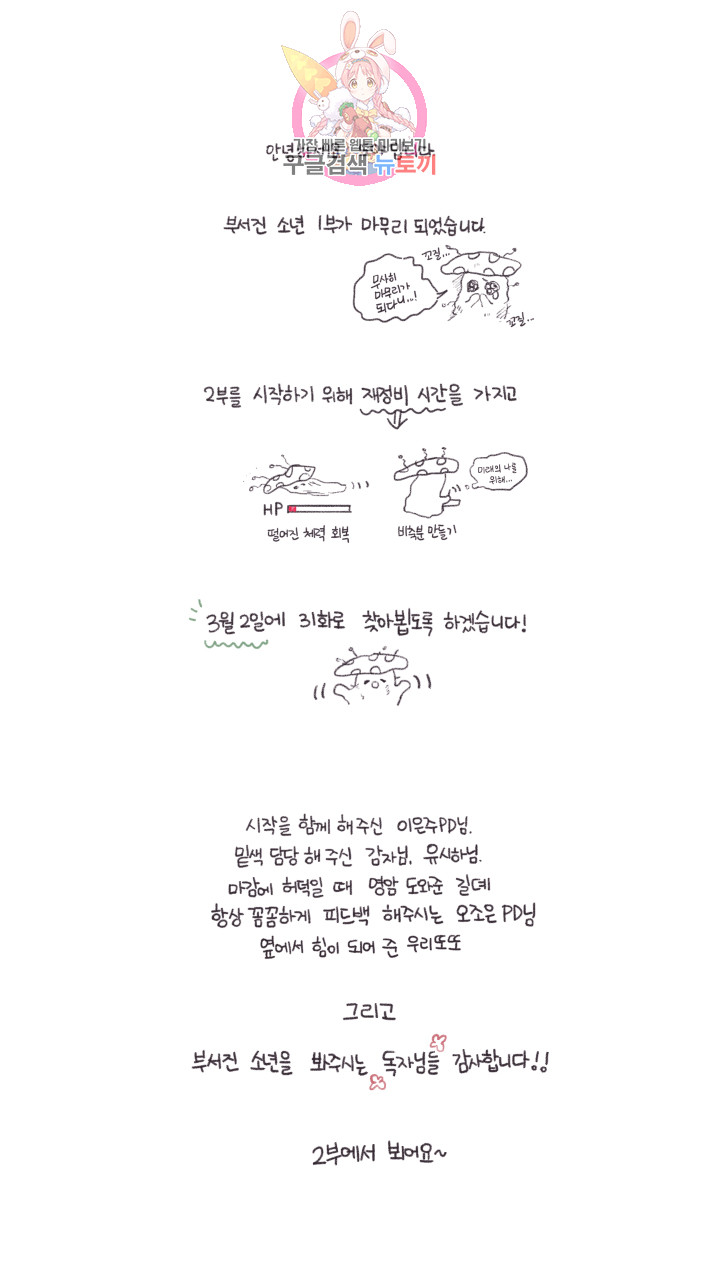 가장 빠른 웹툰 미리보기
구글검색 뉴토끼
부서진 소년 1부가 마무리 되었습니다.
꼬질...
무사히
마무리가
되다니...!
꼬질...
2부를 시작하기 위해 재정비 시간을 가지고
미래의 나를
위해...
HP
떨어진 체력 회복
비축분 만들기
3월 2일에 31화로 찾아뵙도록 하겠습니다!
시작을 함께 해주신 이은주PD님.
밑색 담당 해 주신 감자님, 유시하님.
마감에 허덕일 때 명암 도와준 길데
항상 꼼꼼하게 피드백 해주시는 오조은 PD님
옆에서 힘이 되어 준 우리또또
그리고
부서진 소년을 봐주시는 독자님들 감사합니다!!
2부에서 뵈어요~